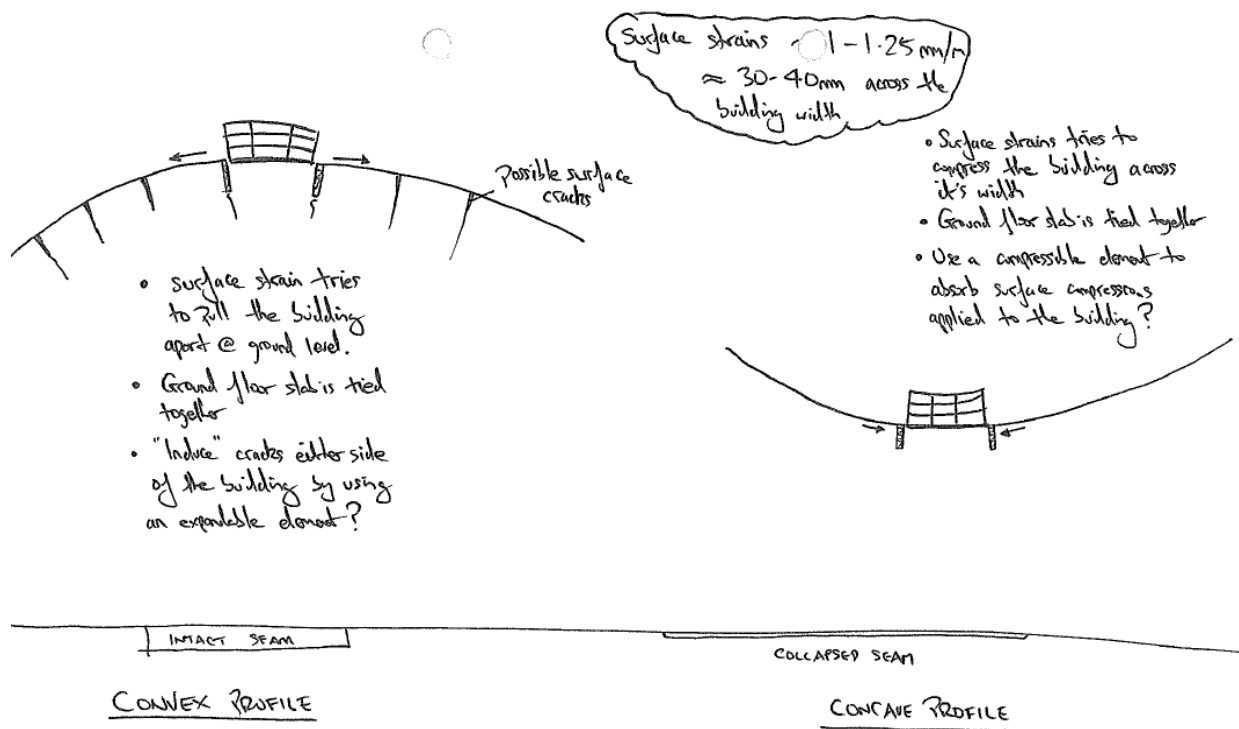 Surface strains ~ 1-1.25mm/m
≈ 30-40mm across the
building width
Possible surface
cracks
• Surface strain tries
to pull the building
apart @ ground level.
• Ground floor slab is tied
together
• "Induce" cracks either side
of the building by using
an expandable element?
• Surface strains tries to
compress the building across
it's width
• Ground floor slab is tied together
• Use a compressible element to
absorb surface compressions
applied to the building?
INTACT SEAM
COLLAPSED SEAM
CONVEX PROFILE
CONCAVE PROFILE